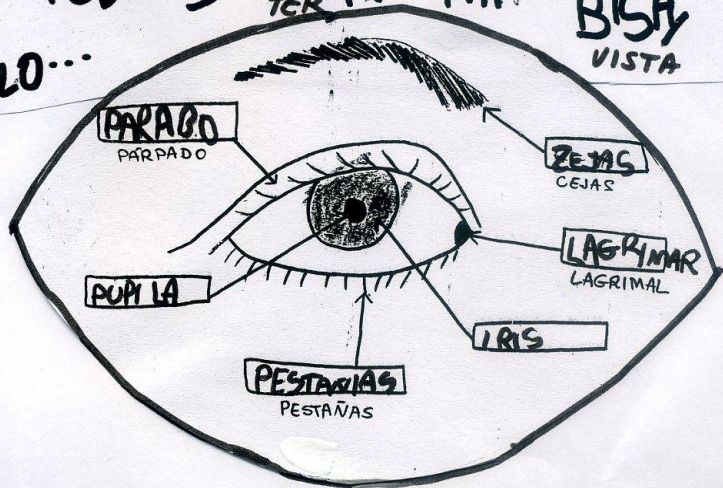 TER
BISTA
VISTA
LO...
PARABO
PÁRPADO
ZEJAS
CEJAS
LAGRIMAR
LAGRIMAL
PUPILA
IRIS
PESTANIAS
PESTAÑAS